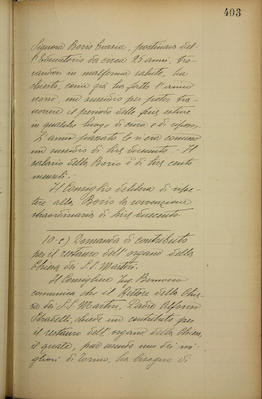 403
Signora Borio Maria, portinaia del
l'Educatorio da circa 25 anni, tro-
vandosi in malferma salute, ha
chiesto, come già ha fatto l'anno
scorso, un sussidio per poter tra-
scorrere il periodo delle ferie estive
in qualche luogo di cura e di riposo.
L'anno passato le si era concesso
un sussidio di lire duecento. Il
salario della Borio è di lire cento
mensili.
Il Consiglio delibera di ripe-
tere alla Borio la sovvenzione
straordinaria di lire duecento
10-c) Domanda di contributo
per il restauro dell'organo della
Chiesa dei S.S. Martiri.
Il Consigliere Ing.
comunica che il Rettore della Chie-
sa dei S.S. Martiri, Padre
Stradelli, chiede un contributo per
il restauro dell'organo della Chiesa,
il quale, pur essendo uno dei mi-
gliori di Torino, ha bisogno di